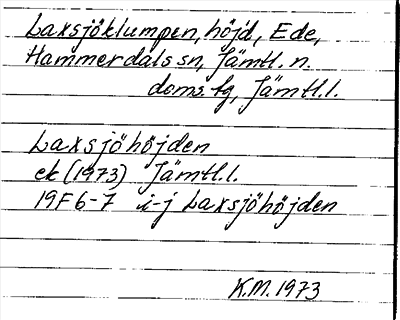 Laxsjöklumpen, höjd, Ede,
Hammerdals sn, Jämtl. n.
doms. fg, Jämtl. l.
Laxsjöhöjden
ek (1973) Jämtl. l.
19F 6-7 i-j Laxsjöhöjden
K.M. 1973